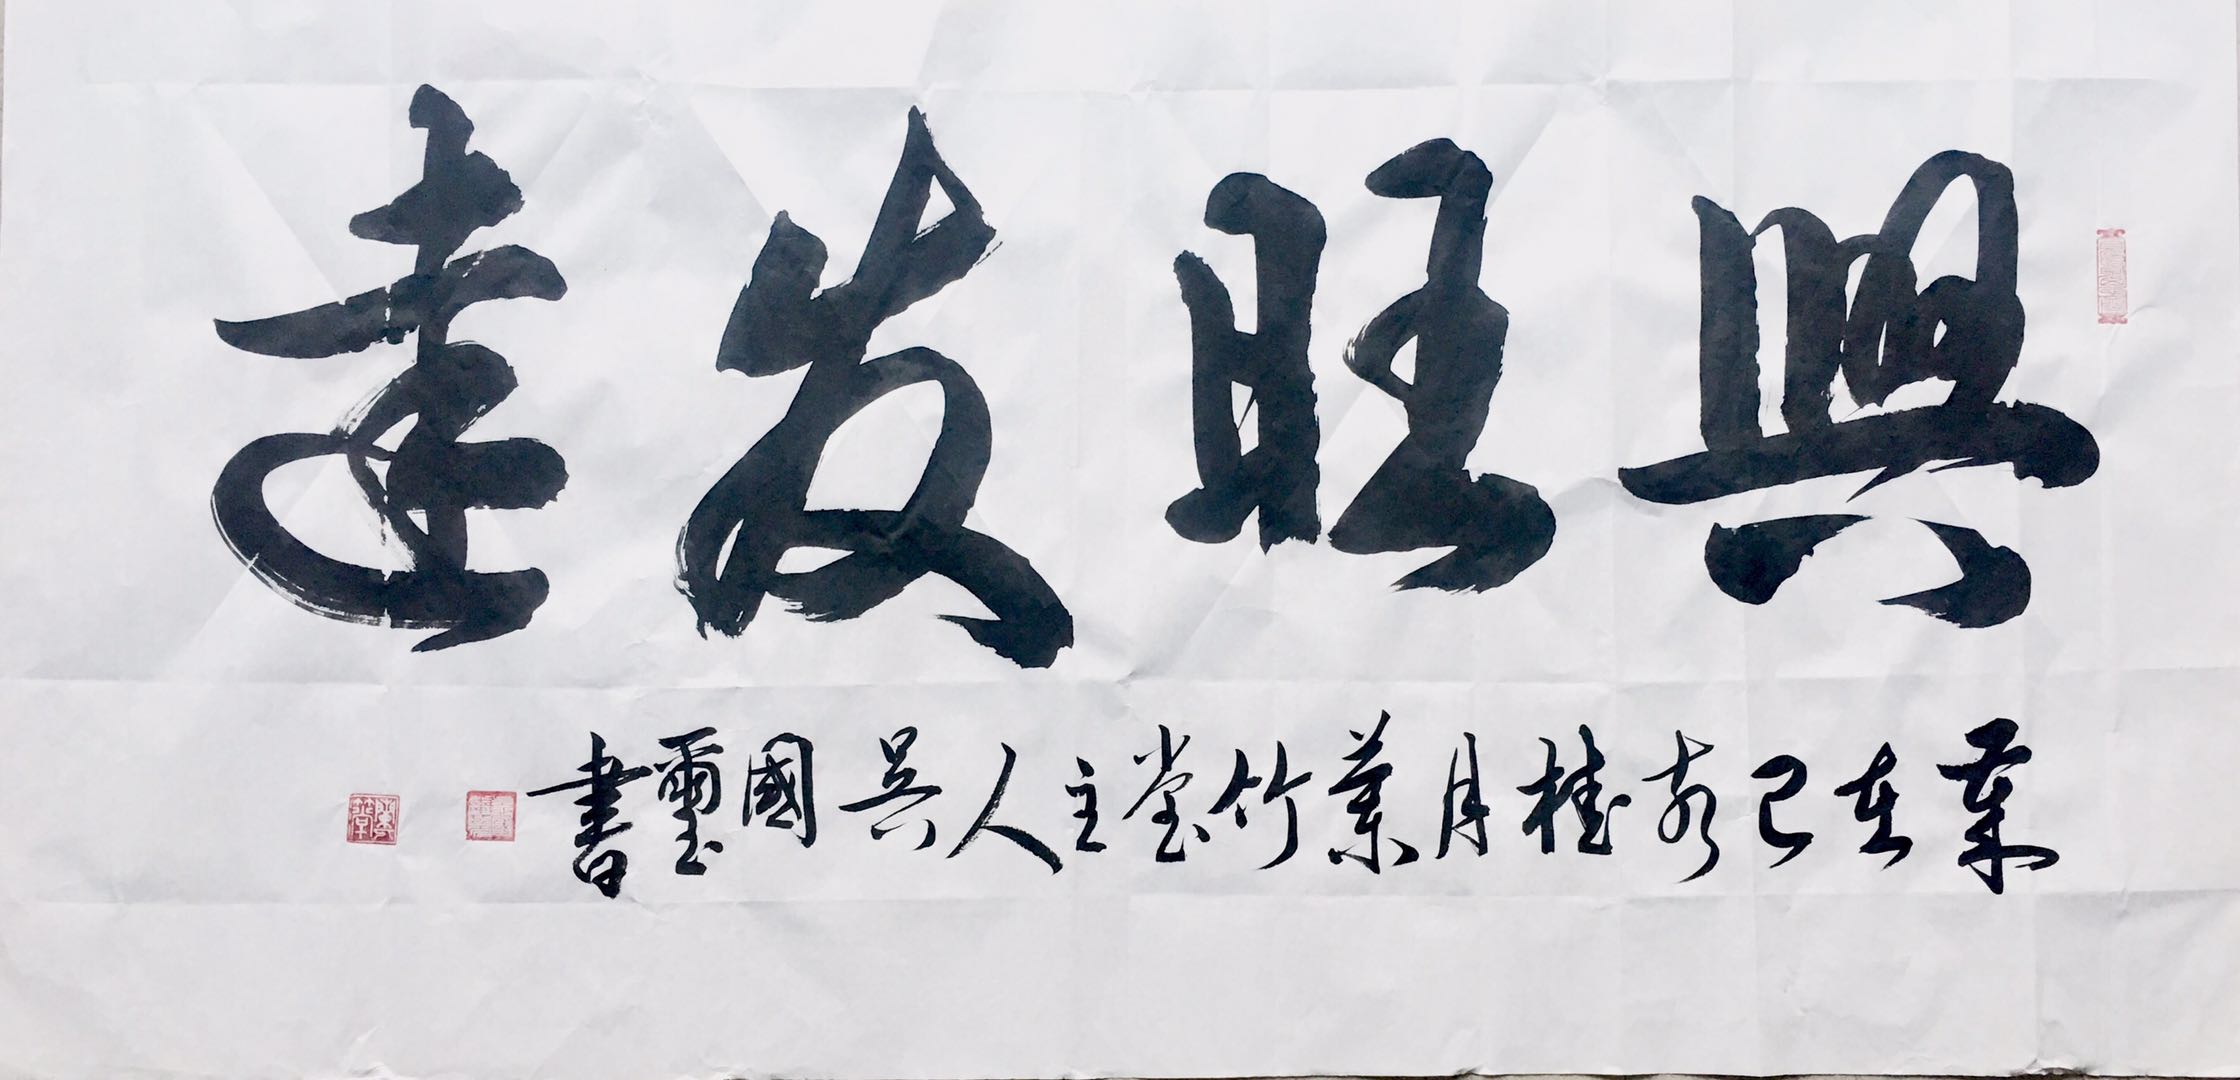 興旺发達
歲在己亥桂月蘭竹堂主人吳國璽書